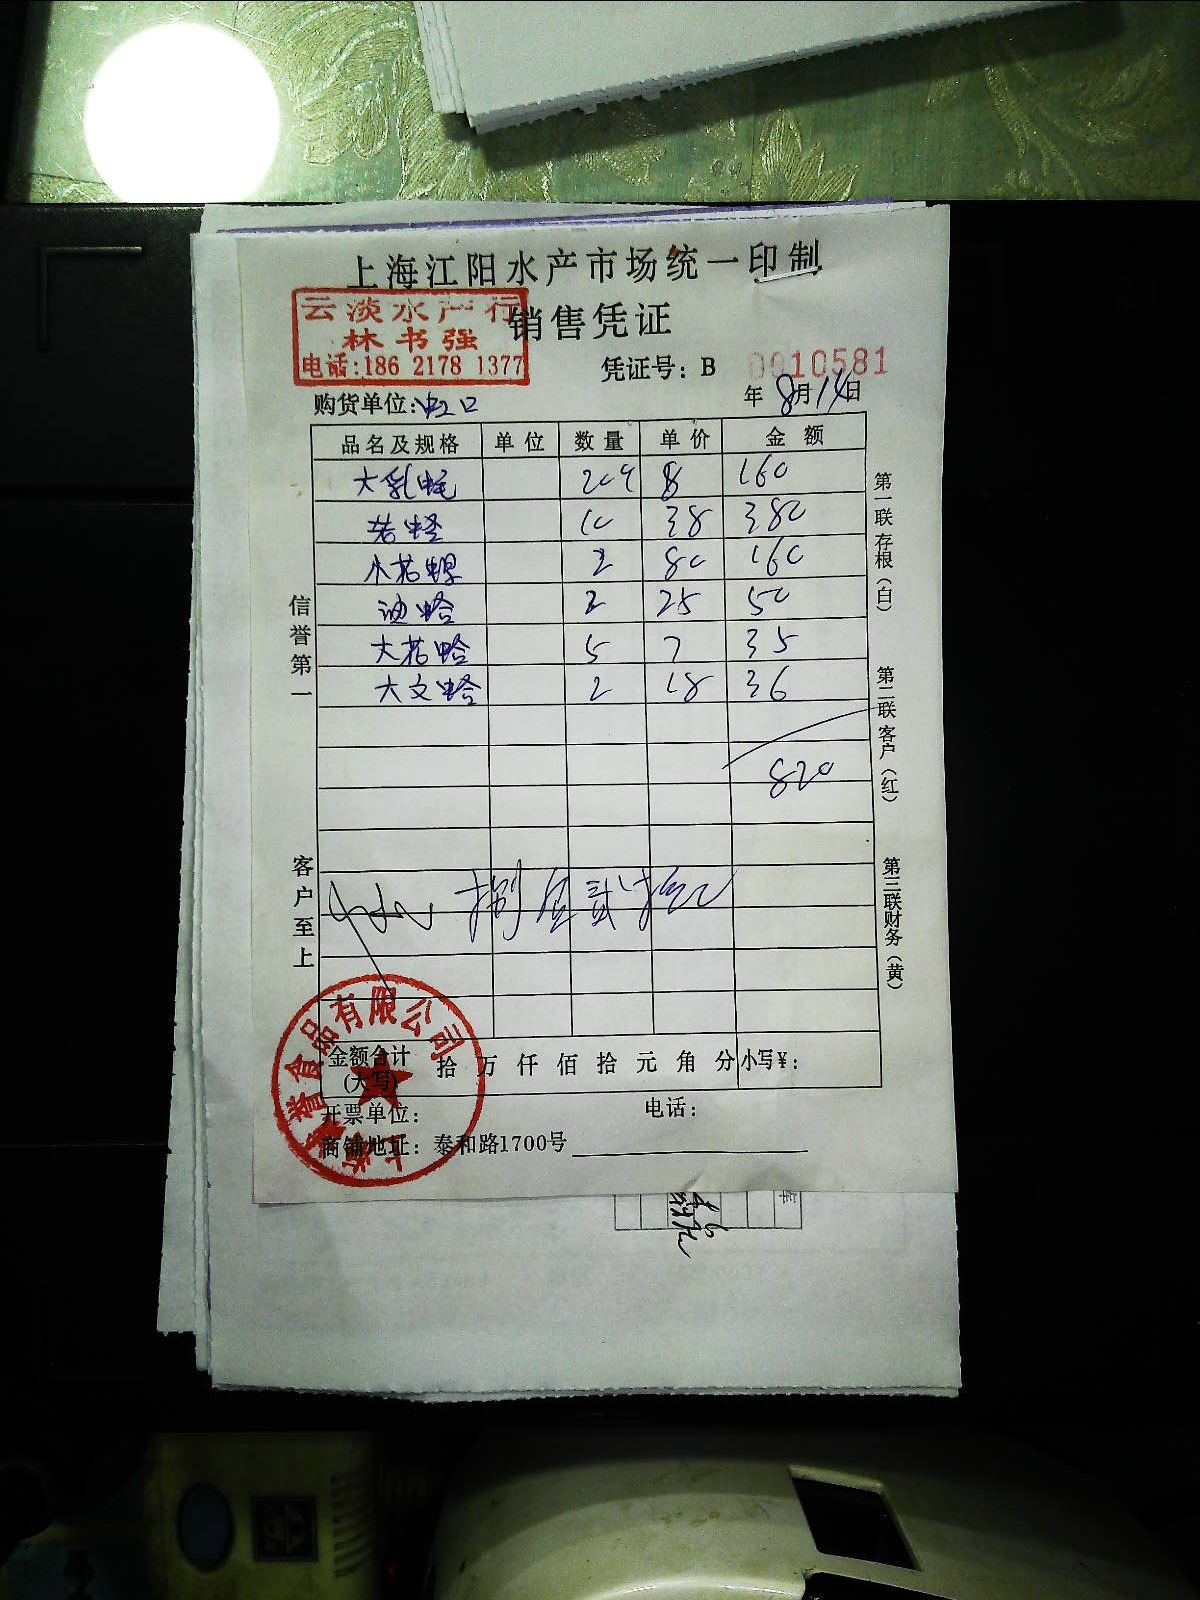 上海江阳水产市场统一印制
销售凭证
云淡水产行
林书强
电话:186 2178 1377
凭证号: B 0010581
购货单位:虹口
年 8月14日
品名及规格 单位 数量 单价 金额
大乳蚝 20个 8 160
花蛏 10 38 380
小花螺 2 80 160
油蛤 2 25 50
大花蛤 5 7 35
大文蛤 2 18 36
820
捌佰贰拾元
金额合计 拾 万 仟 佰 拾 元 角 分 小写¥:
(大写)
开票单位: 电话:
商铺地址: 泰和路1700号
信誉第一
客户至上
第一联存根(白)
第二联客户(红)
第三联财务(黄)
食品有限公司